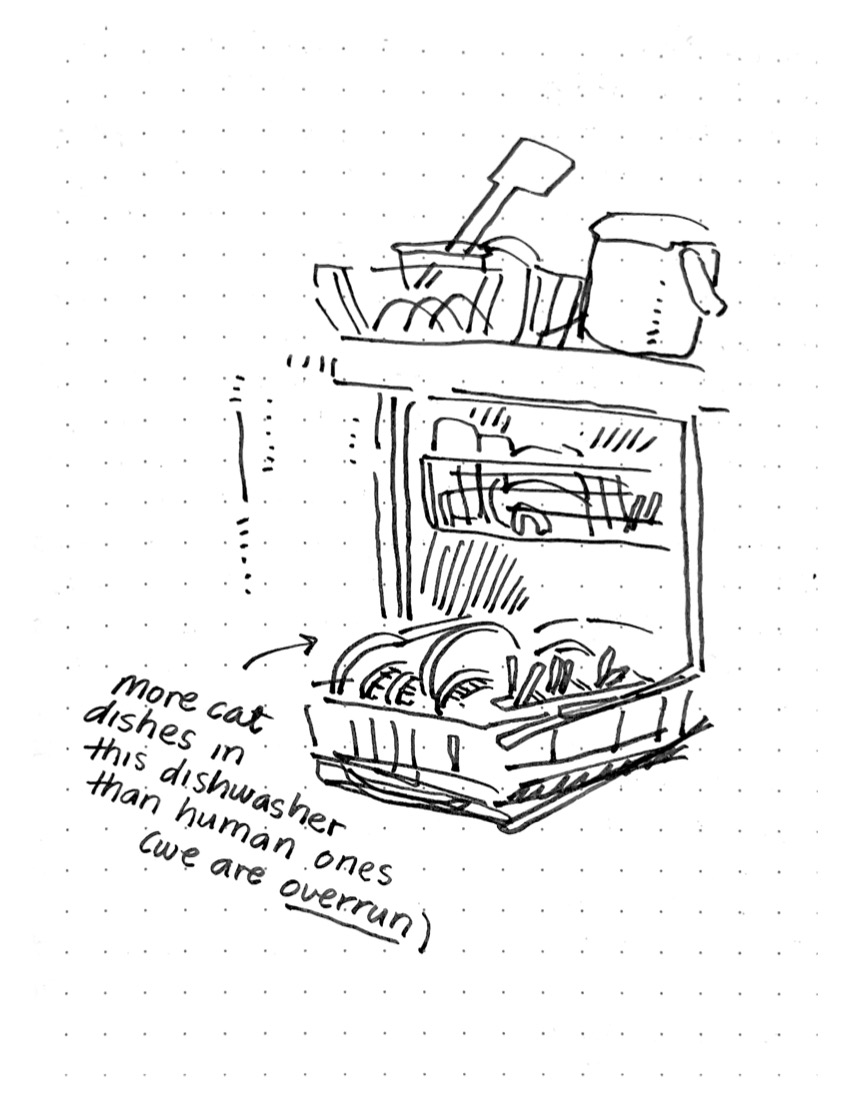 more cat
dishes in
this dishwasher
than human ones
(we are overrun)